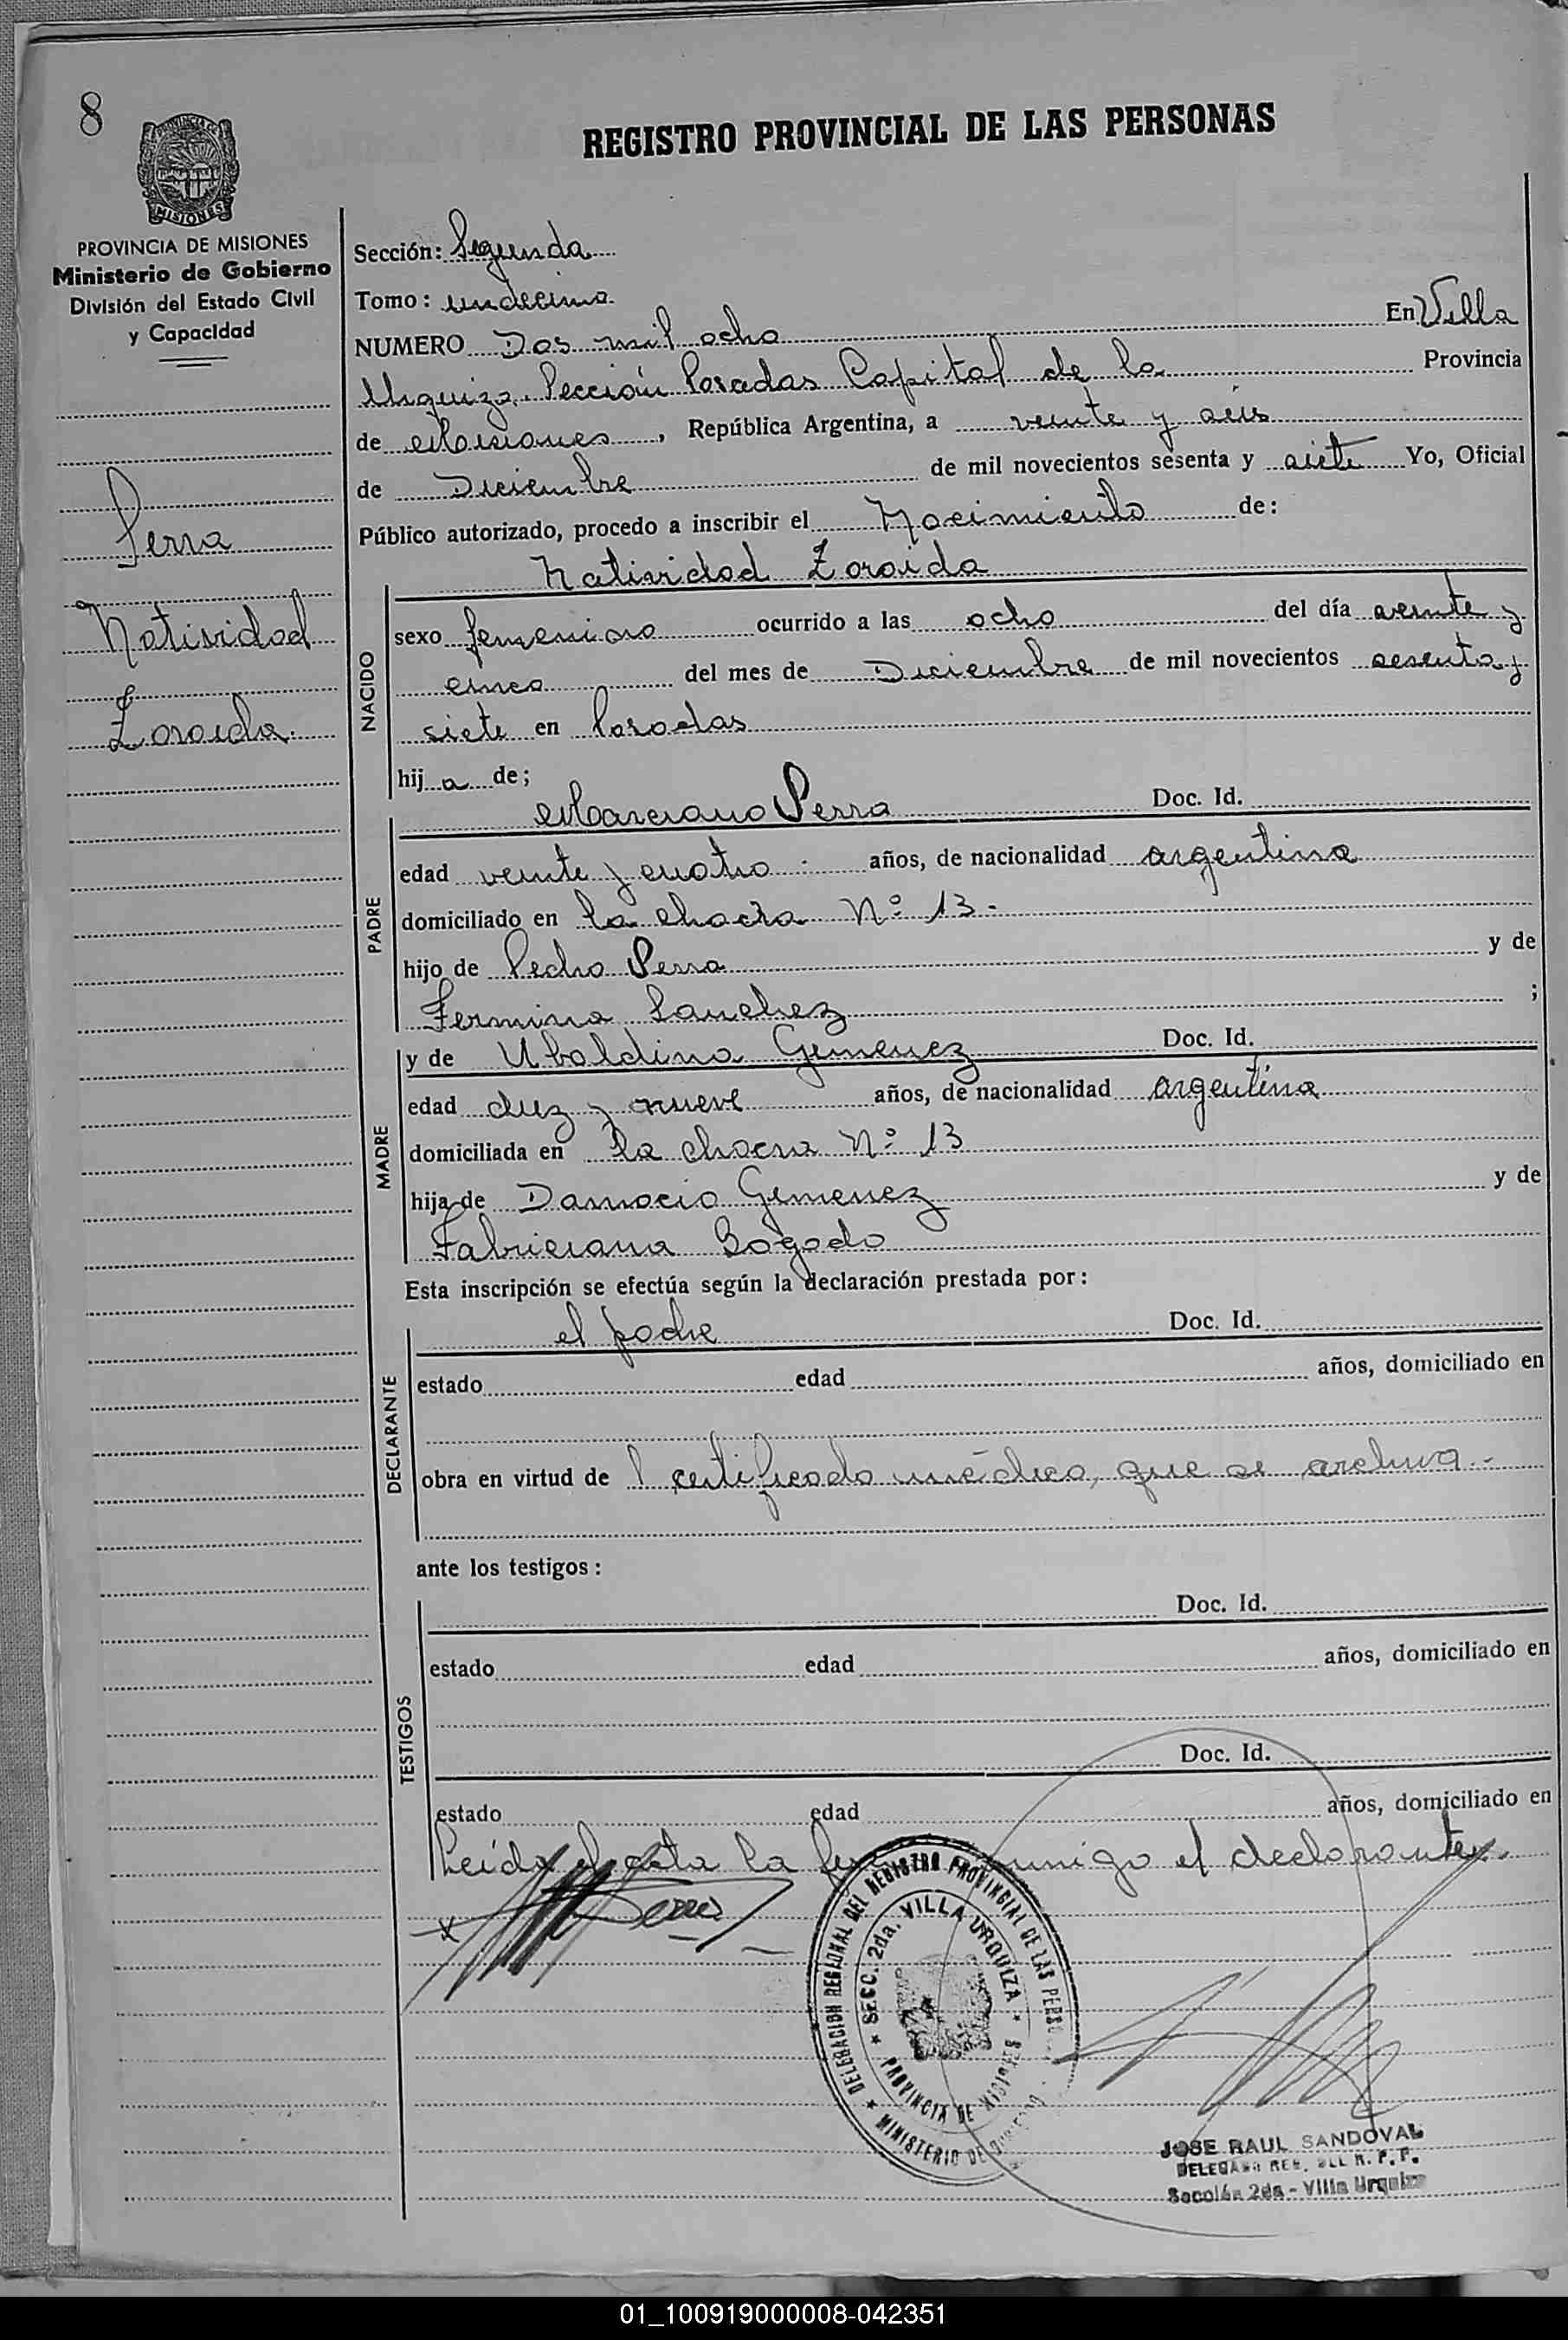 8
REGISTRO PROVINCIAL DE LAS PERSONAS
PROVINCIA DE MISIONES
Ministerio de Gobierno
División del Estado Civil
y Capacidad
Serra
Natividad
Zoraida
Sección: Segunda
Tomo: undécimo
NUMERO Dos mil ocho En Villa
Urquiza Sección Posadas Capital de la Provincia
de Misiones, República Argentina, a veinte y seis
de Diciembre de mil novecientos sesenta y siete Yo, Oficial
Público autorizado, procedo a inscribir el Nacimiento de:
Natividad Zoraida
NACIDO
sexo femenino ocurrido a las ocho del día veinte y
cinco del mes de Diciembre de mil novecientos sesenta y
siete en Posadas
hija de;
PADRE
Marciano Serra Doc. Id.
edad veinte y cuatro años, de nacionalidad argentina
domiciliado en la chacra Nº 13.-
hijo de Pedro Serra y de
Fermina Sanchez ;
MADRE
y de Ubaldina Gimenez Doc. Id.
edad diez y nueve años, de nacionalidad argentina
domiciliada en la chacra Nº 13
hija de Damacio Gimenez y de
Fabriciana Bogado
Esta inscripción se efectúa según la declaración prestada por:
DECLARANTE
el padre Doc. Id.
estado edad años, domiciliado en
obra en virtud de l certificado médico, que se archiva.-
ante los testigos:
TESTIGOS
Doc. Id.
estado edad años, domiciliado en
Doc. Id.
estado edad años, domiciliado en
Leída el acta la conmigo el declarante.
DELEGACION REGIONAL DEL REGISTRO PROVINCIAL DE LAS PERSO
SECC. 2da. VILLA URQUIZA
PROVINCIA DE MISIONES
MINISTERIO DE
JOSE RAUL SANDOVAL
DELEGADO REG. DEL R. P. P.
Sección 2da - Villa Urquiza
01_100919000008-042351